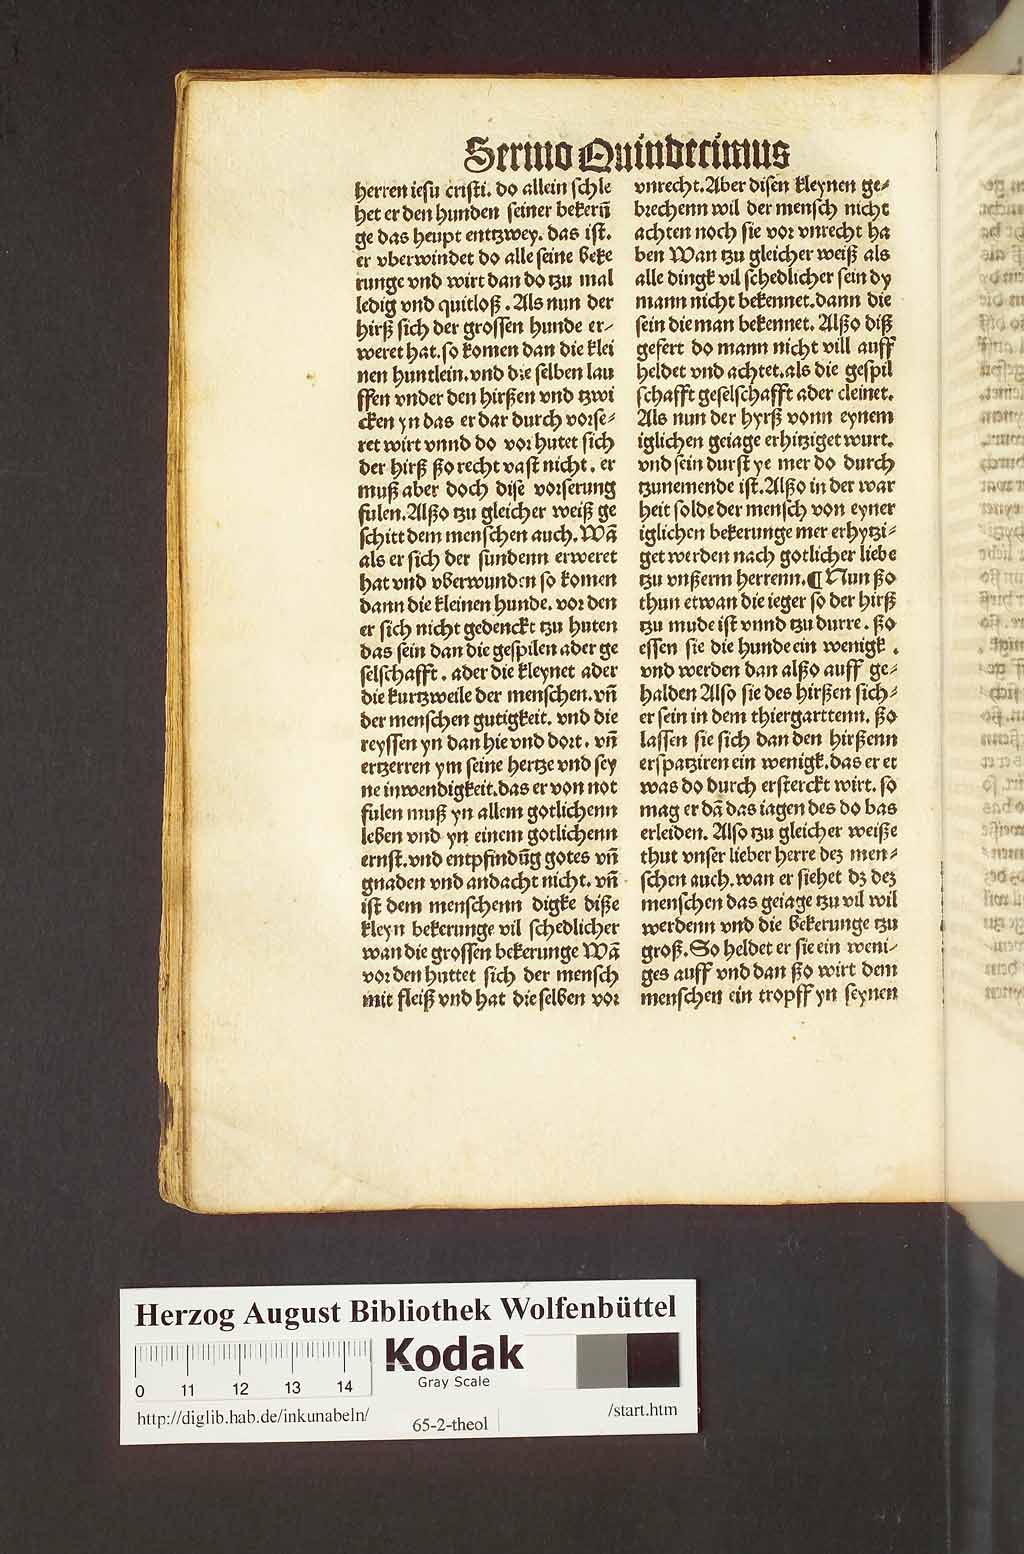 Sermo Quindecimus
herren iesu cristi. do allein schle
het er den hunden seiner bekerūͤ
ge das heupt entzwey. das ist.
er vberwindet do alle seine beke
runge vnd wirt dan do tzu mal
ledig vnd quitloß. Als nun der
hirß sich der grossen hunde er-
weret hat. so komen dan die klei
nen huntlein. vnd die selben lau
ffen vnder den hirßen vnd tzwi
cken yn das er dar durch vorse-
ret wirt vnnd do vor hutet sich
der hirß ßo recht vast nicht. er
muß aber doch dise vorserung
fulen. Alßo tzu gleicher weiß ge
schitt dem menschen auch. Wā
als er sich der sundenn erweret
hat vnd vberwunden so komen
dann die kleinen hunde. vor den
er sich nicht gedenckt tzu huten
das sein dan die gespilen ader ge
selschafft. ader die kleynet ader
die kurtzweile der menschen. vn̄
der menschen gutigkeit. vnd die
reyssen yn dan hie vnd dort. vn̄
ertzerren ym seine hertze vnd sey
ne inwendigkeit. das er von not
fulen muß yn allem gotlichenn
leben vnd yn einem gotlichenn
ernst. vnd entpfindūg gotes vn̄
gnaden vnd andacht nicht. vn̄
ist dem menschenn digke diße
kleyn bekerunge vil schedlicher
wan die grossen bekerunge Wā
vor den huttet sich der mensch
mit fleiß vnd hat die selben vor
vnrecht. Aber disen kleynen ge-
brechenn wil der mensch nicht
achten noch sie vor vnrecht ha
ben Wan tzu gleicher weiß als
alle dingk vil schedlicher sein dy
mann nicht bekennet. dann die
sein die man bekennet. Alßo diß
gefert do mann nicht vill auff
heldet vnd achtet. als die gespil
schafft geselschafft ader cleinet.
Als nun der hyrß vonn eynem
iglichen geiage erhitziget wurt.
vnd sein durst ye mer do durch
tzunemende ist. Alßo in der war
heit solde der mensch von eyner
iglichen bekerunge mer erhytzi-
get werden nach gotlicher liebe
tzu vnßerm herrenn. ¶ Nun ßo
thun etwan die ieger so der hirß
tzu mude ist vnnd tzu durre. ßo
essen sie die hunde ein wenigk.
vnd werden dan alßo auff ge-
halden Also sie des hirßen sich-
er sein in dem thiergarttenn. ßo
lassen sie sich dan den hirßenn
erspatziren ein wenigk. das er et
was do durch ersterckt wirt. so
mag er dā das iagen des do bas
erleiden. Also tzu gleicher weiße
thut vnser lieber herre dez men-
schen auch. wan er siehet dz dez
menschen das geiage tzu vil wil
werdenn vnd die bekerunge tzu
groß. So heldet er sie ein weni-
ges auff vnd dan ßo wirt dem
menschen ein tropff yn seynen
Herzog August Bibliothek Wolfenbüttel
Kodak
Gray Scale
0 11 12 13 14
http://diglib.hab.de/inkunabeln/ 65-2-theol /start.htm